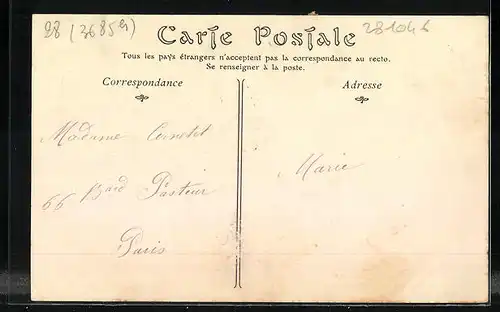 28 (3685 281046
Carte Postale
Tous les pays étrangers n'acceptent pas la correspondance au recto.
Se renseigner à la poste.
Correspondance
Adresse
Madame
Marie
66 Bard Pasteur
Paris